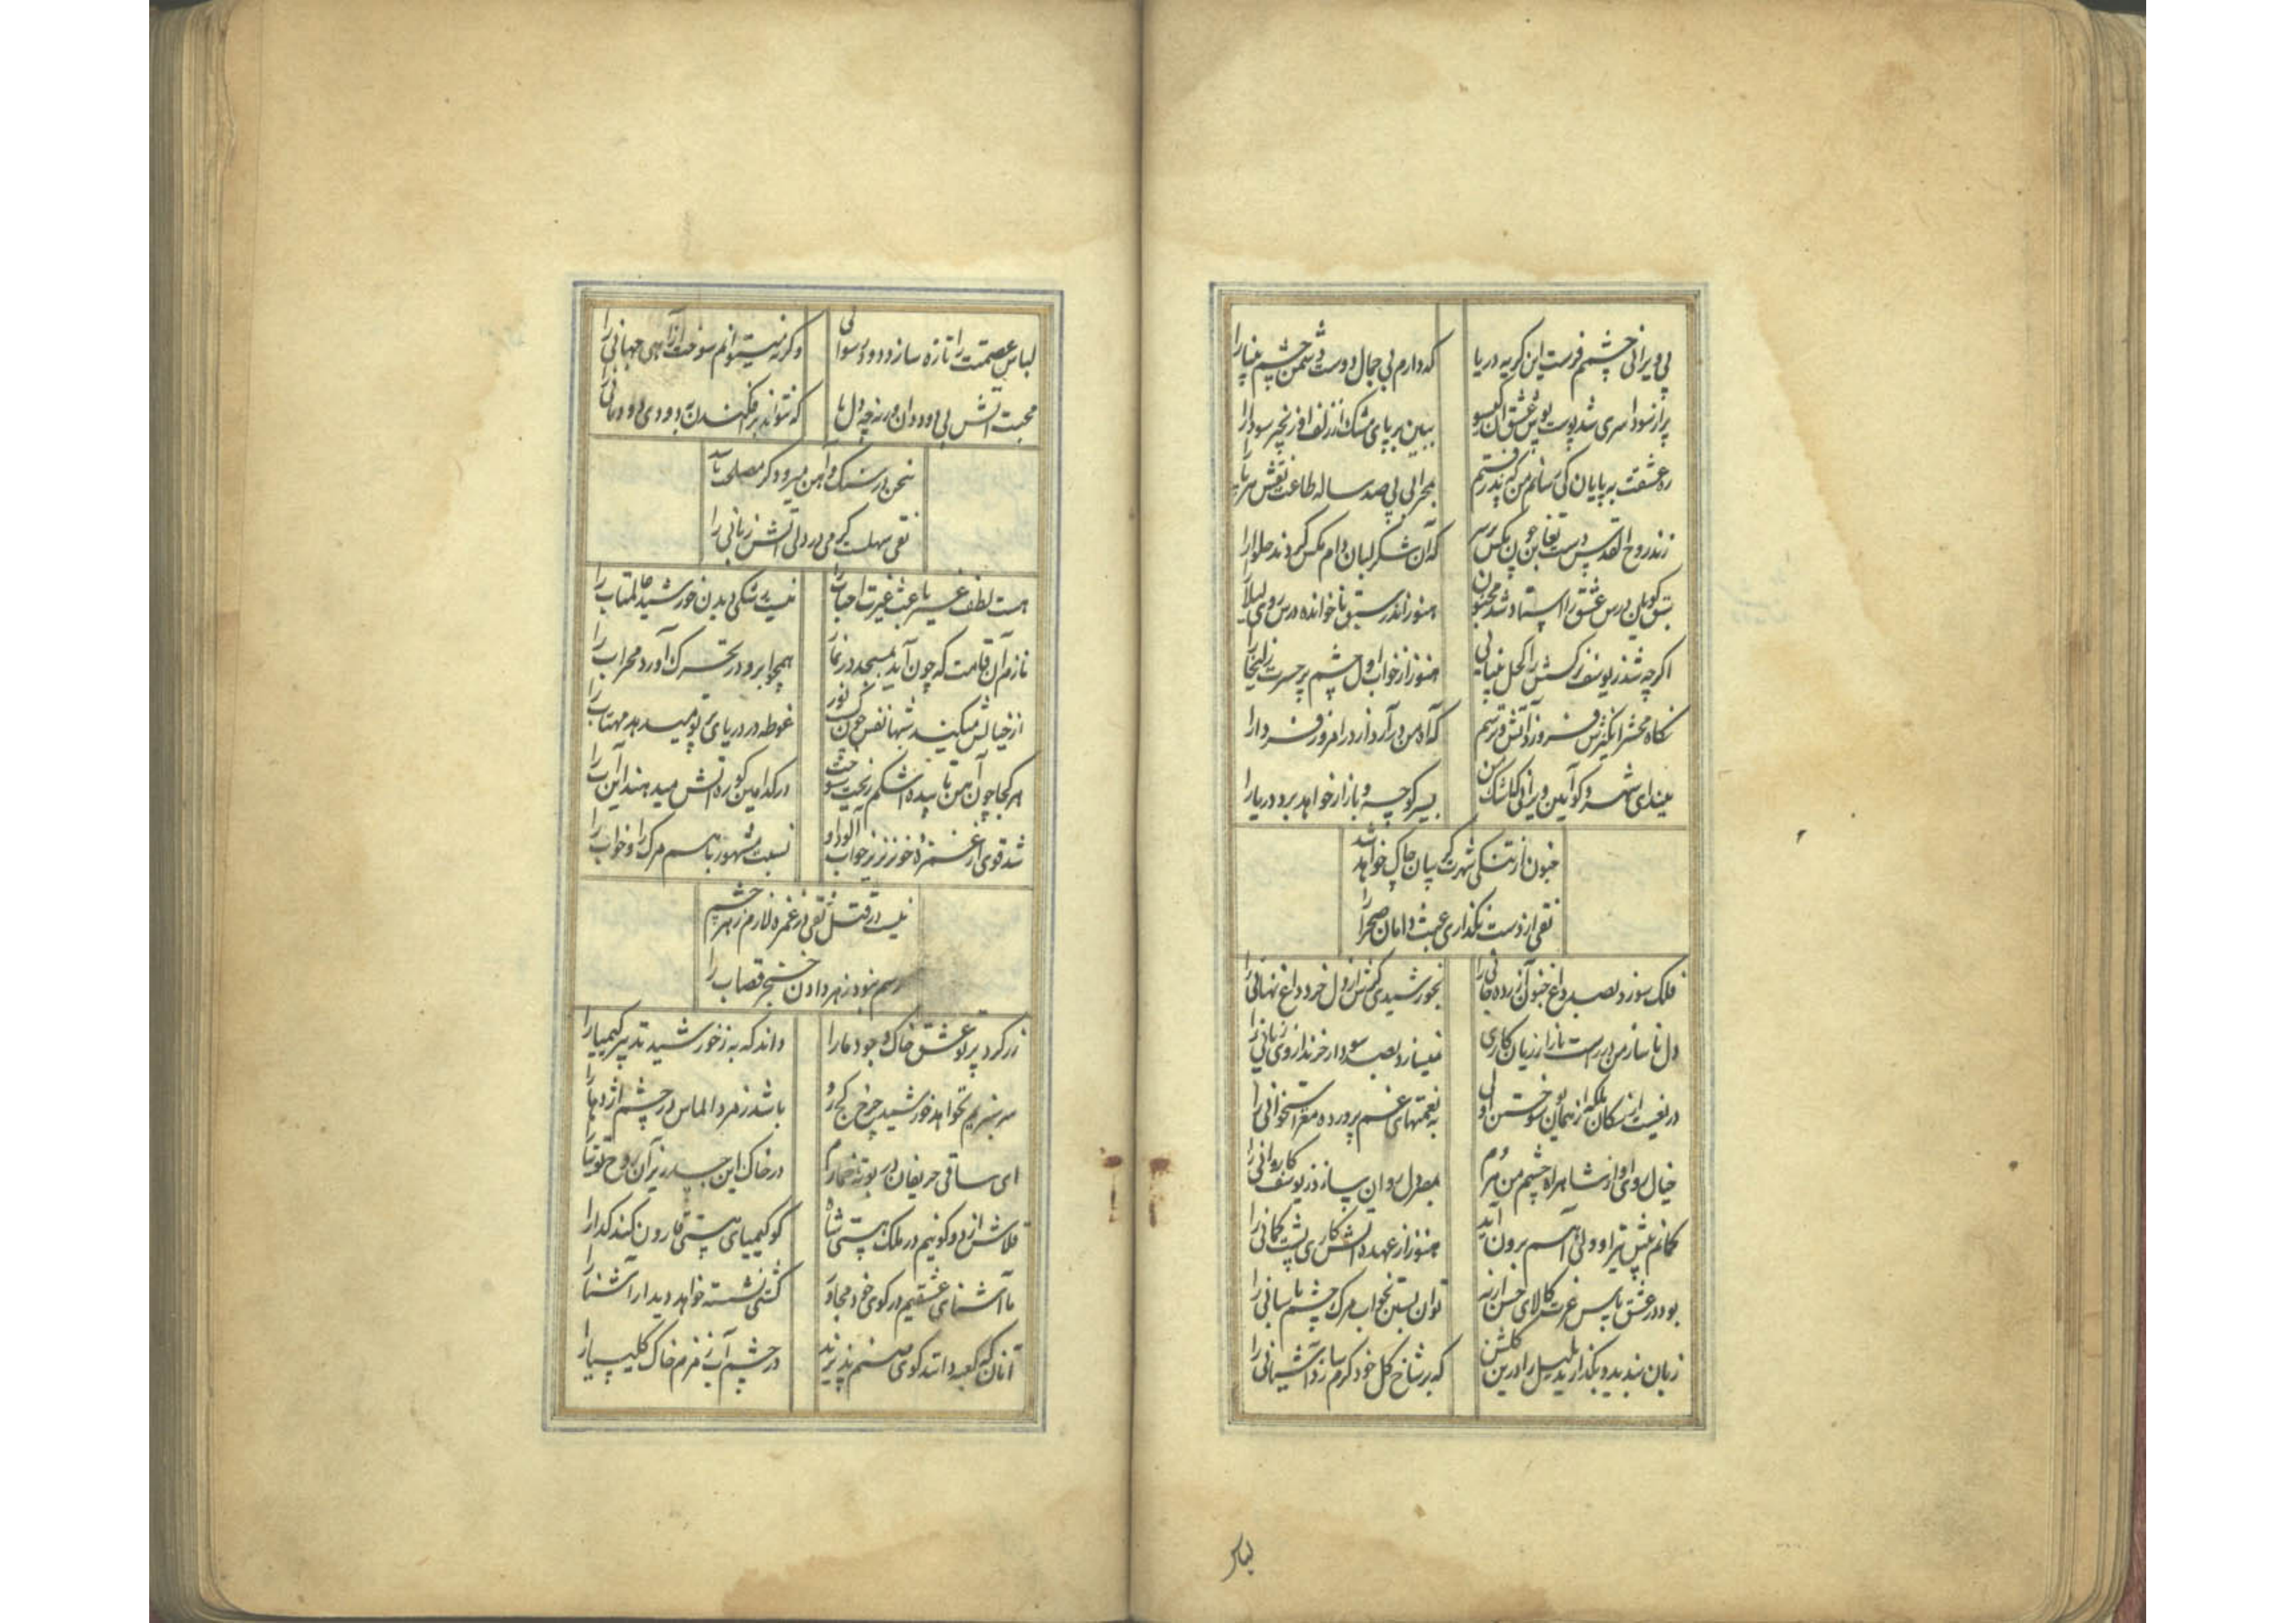 پی ویرانی چشمم فرست این گریه دریا را
که دارم بی جمال دوست دشمن چشم بینا را
پر از سودا سری شد پوست پوش عشق آن گیسو
ببین بر پای مشک از زلف او زنجیر سودا را
ره عشقت به پایان کی رسانم من که نپذیرفتم
به محرابی پی صد ساله طاعت نقش
زند روح القدس دست تغابن چون مگس بر سر
که آن شکر لبان دام مگس کردند حلوا را
درس عشق را استاد شد مجنون
هنوز اندر سبق ناخوانده درس روی لیلا را
اگر چه شد ز یوسف نرگسش را کحل بینایی
هنوز از خواب اول چشم پر حسرت زلیخا را
نگاه محشر انگیزش فروزد آتش و ترسم
که آه من در آرد از در امروز فردا را
ببیند ای شهر و کو آیین ویرانی که اشک من
بسیر کوچه و بازار خواهد برد دریا را
جنون از تنگی شهرت گریبان چاک خواهد شد
تقی از دست نگذاری عبث دامان صحرا را
فلک سوزد بصد داغ جنون آزرده جانی را
بخورشیدی کش از دل خرد داغ نهانی را
دل ناساز من در راست بازار زیان کاری
نمیسازد بصد سودا خرندار وی زیانی را
دریغست از سگان بلکه از همان سوختن اولی
به نعمتهای غم پرورده مغز استخوانی را
خیال روی او از شاهراه چشم من هر دم
بمصر دل روان سازد ز یوسف کاروانی را
کمانم پیش تیر او ولی آهم برون آید
هنوز از عهده آتش کاری پشت کمانی را
بود در عشق پاس غیرت کالای حسن ار نه
توان بستن بخواب مرگ چشم پاسبانی را
زبان بندید و بگذارید بلبل را درین گلشن
که بر شاخ گل خود گرم سازد آشیانی را
لباس
لباس عصمتت را تازه سازد دود رسوایی
وگرنه میتوانم سوخت از آهی جهانی را
محبت آتش بی دود دان ورنه چه دل ها
که نتواند بر افکندن به دودی دودمانی را
سخن در سنگ و آهن میرود گر مصلحت باشد
تقی سهلست گرمی در دلی آتش زبانی را
هست لطف غیر باعث غیرت احباب را
نیست بی شکی دیدن خورشید عالمتاب را
نازم آن قامت که چون آید بمسجد در نماز
همچو ابرو در تحرک آورد محراب را
از خیالش میکند شبها نفس چون کسب نور
غوطه در دریای پرتو میدهد مهتاب را
هر کجا چون آهن تابیده اشکم ریخت سوخت
در کدامین کوره آتش میدهند این آب را
شد قوی از غمزه خونریز خواب آلود او
نسبت مشهور باهم مرگ را و خواب را
نیست در قتل تقی در غمزه لازم زهر چشم
رسم نبود زهر دادن خنجر قصاب را
زر کرد پرتو عشق خاک وجود ما را
داند که به ز خورشید تدبیر کیمیا را
سرسبزیم نخواهد خورشید چرخ کج رو
باشد زمرد الماس در چشم اژدها را
ای ساقی حریفان در بوته خمارم
در خاک این جسد ریز آن روح توتیا را
قلاش از دو کونیم در ملک هستی شاه
کو کیمیای هستی قارون کند گدا را
ما آشنای عشقیم در کوی خود مجاور
کشتی نشسته خواهد دیدار آشنا را
آنان که کعبه دانند کوی صنم پذیرند
در چشم آب زمزم خاک کلیسیا را